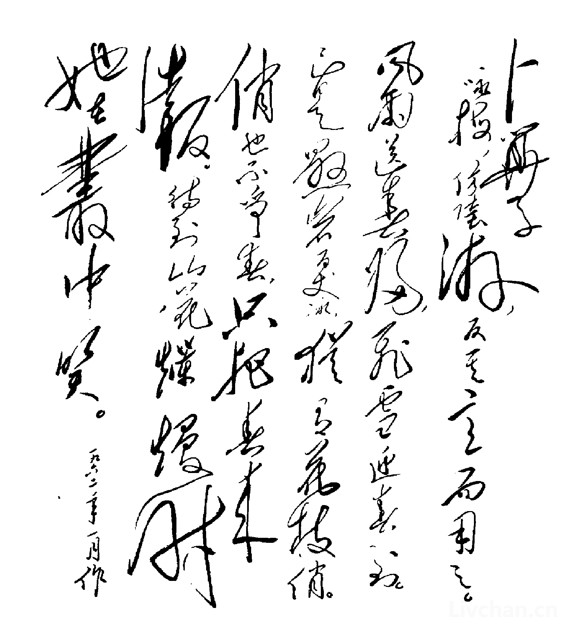 卜算子
咏梅，仿陆游，反其意而用之。
风雨送春归，飞雪迎春到。
已是懸岩百丈冰，犹有花枝俏。
俏也不争春，只把春来
报。待到山花爛熳时
她在叢中笑。
一九六二年一月作
Livchan.cn